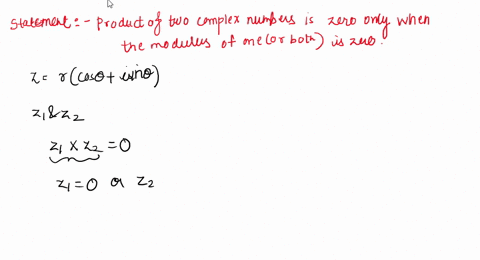 Statement:- Product of two complex numbers is zero only when
the modulus of one (or both) is zero.
z = r(cosθ + isinθ)
z₁ & z₂
z₁ × z₂ = 0
z₁ = 0 or z₂